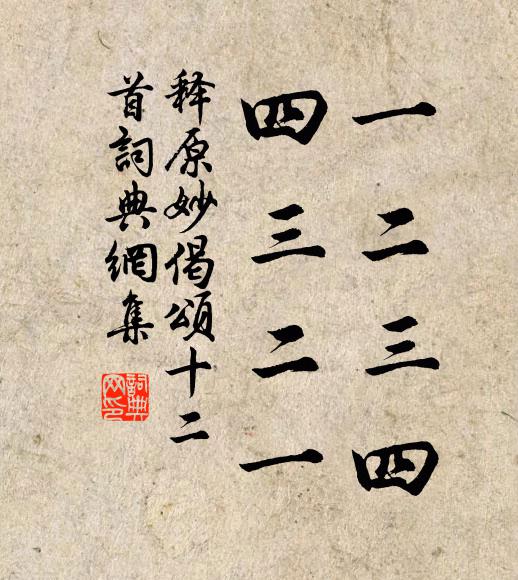 一二三四
四三二一
释原妙偈頌十二
首詞典網集
詞典
网印